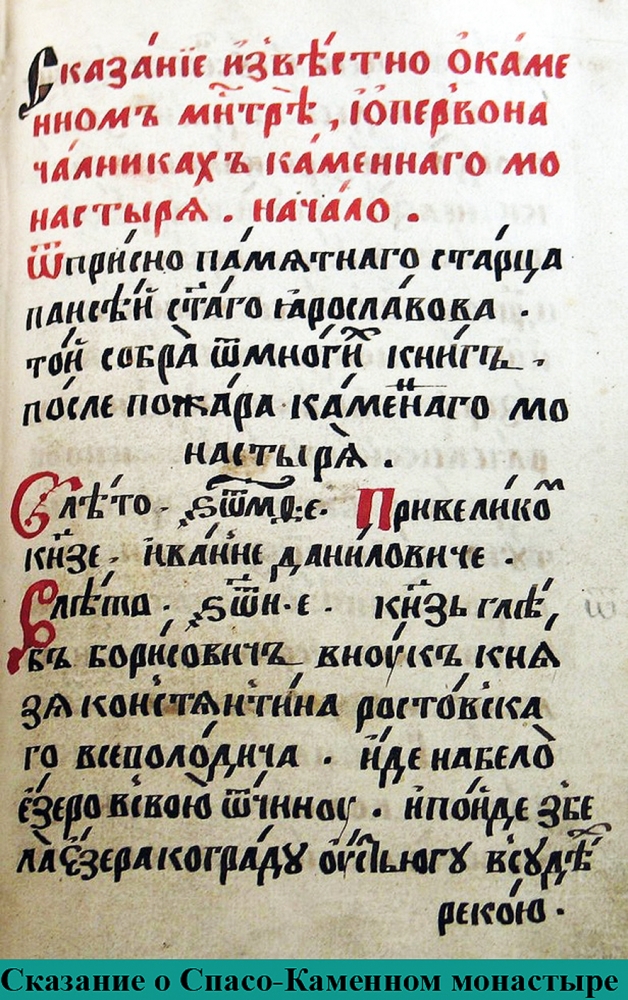 Сказа́нїе и҆звѣ́стно ѻ҆ка́ме
нномъ мн҃трѣ̀, і҆ѻ҆пе́рвона
ча́лникахъ ка́меннаго мо
настырѧ̀. нача́ло.
Ѿпри́сно па́мѧтнаго ста́рца
паисѣ́й ст҃а́го ꙗ҆росла́вова.
то́й собра̀ ѿмно́гихъ кни́гъ.
по́сле пожа́ра ка́меннаго мо
настырѧ̀.
Влѣ́то. ҂ѕѿмѳ҃.е. Привели́ком
кн҃зе. ива́нне дани́ловиче.
Влѣ́та. ҂ѕѿн҃.е. кн҃зь глѣ́,
бъ бори́совичъ внꙋ́къ кнѧ
зѧ константи́на росто́вска
го всеполо́дича. и҆́де набе́ло
е҆́зеро всвою̀ ѿчинноу. и҆по́иде збе
ла̀е҆́зера когра́дꙋ оу҆́стьюгꙋ всꙋдѣ́
реко́ю.
Сказание о Спасо-Каменном монастыре